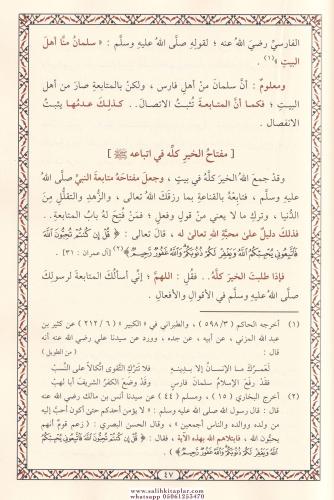 الفارسيِّ رضيَ اللهُ عنه ؛ لقولِهِ صلَّى اللهُ عليهِ وسلَّم : « سلمانُ منَّا أهلَ
البيتِ »(١) .
ومعلومٌ : أنَّ سلمانَ منْ أهلِ فارس ، ولكنْ بالمتابعةِ صارَ من أهلِ
البيتِ ؛ فكما أنَّ المتابعةَ تُثبتُ الاتصالَ.. كذلكَ عدمُها يثبتُ
الانفصال .
[ مفتاحُ الخيرِ كلِّه في اتباعه ﷺ ]
وقدْ جمعَ اللهُ الخيرَ كلَّه في بيتٍ ، وجعلَ مفتاحَهُ متابعةَ النبيِّ صلَّى اللهُ
عليهِ وسلَّم ، فتابعْهُ بالقناعةِ بما رزقَكَ اللهُ تعالى ، والزُّهدِ والتقلُّلِ مِنَ
الدُّنيا ، وتركِ ما لا يعني منْ قولٍ وفعلٍ ؛ فمَنْ فُتحَ لهُ بابُ المتابعةِ..
فذلكَ دليلٌ علىٰ محبَّةِ اللهِ تعالىٰ له ، قالَ تعالىٰ : ﴿ قُلْ إِن كُنتُمْ تُحِبُّونَ اللَّهَ
فَاتَّبِعُونِي يُحْبِبْكُمُ اللَّهُ وَيَغْفِرْ لَكُمْ ذُنُوبَكُمْ وَاللَّهُ غَفُورٌ رَحِيمٌ ﴾(٢) [آل عمران : ٣١] .
فإذا طلبتَ الخيرَ كلَّهُ.. فقُلِ : اللهمَّ ؛ إنِّي أسألُكَ المتابعةَ لرسولِكَ
صلَّى اللهُ عليهِ وسلَّم في الأقوالِ والأفعالِ .
(١) أخرجه الحاكم ( ٥٩٨/٣ ) ، والطبراني في « الكبير » ( ٢١٢/٦ ) عن كثير بن
عبد الله المزني ، عن أبيه ، عن جده ، وورد عن سيدنا علي رضي الله عنه أنه
قال : ( من الطويل )
لعَمرُكَ ما الإنسانُ إلا بدينِهِ فلا تتركِ التَّقوى اتِّكالاً على النَّسَبْ
فقدْ رفعَ الإسلامُ سلمانَ فارسٍ وقدْ وضعَ الكفرُ الشريفَ أبا لهبْ
(٢) أخرج البخاري ( ١٥ ) ، ومسلم ( ٤٤ ) عن سيدنا أنس بن مالك رضي الله عنه
قال : قال رسول الله صلى الله عليه وسلم : « لا يؤمن أحدكم حتى أكون أحبَّ إليه
من ولده ووالده والناس أجمعين » ، وقال الحسن البصري : ( زعم قوم أنهم
يحبُّون الله ، فابتلاهم الله بهذه الآية ، فقال : ﴿ قُلْ إِن كُنتُمْ تُحِبُّونَ اللَّهَ فَاتَّبِعُونِي يُحْبِبْكُمُ
اللَّهُ وَيَغْفِرْ لَكُمْ ذُنُوبَكُمْ وَاللَّهُ غَفُورٌ رَحِيمٌ ﴾ ) .
٤٧
www.salihkitaplar.com
whatsapp 05061253470